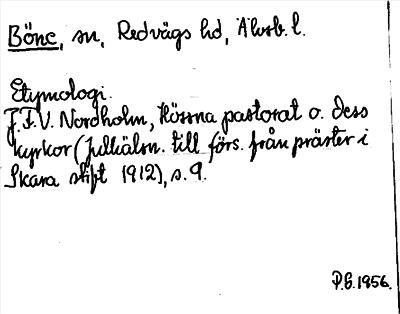 Böne, sn, Redvägs hd, Älvsb. l.
Etymologi.
J.F.V. Nordholm, Hössna pastorat o. dess
kyrkor (Julhälsn. till förs. från präster i
Skara stift 1912), s. 9.
P.G. 1956.